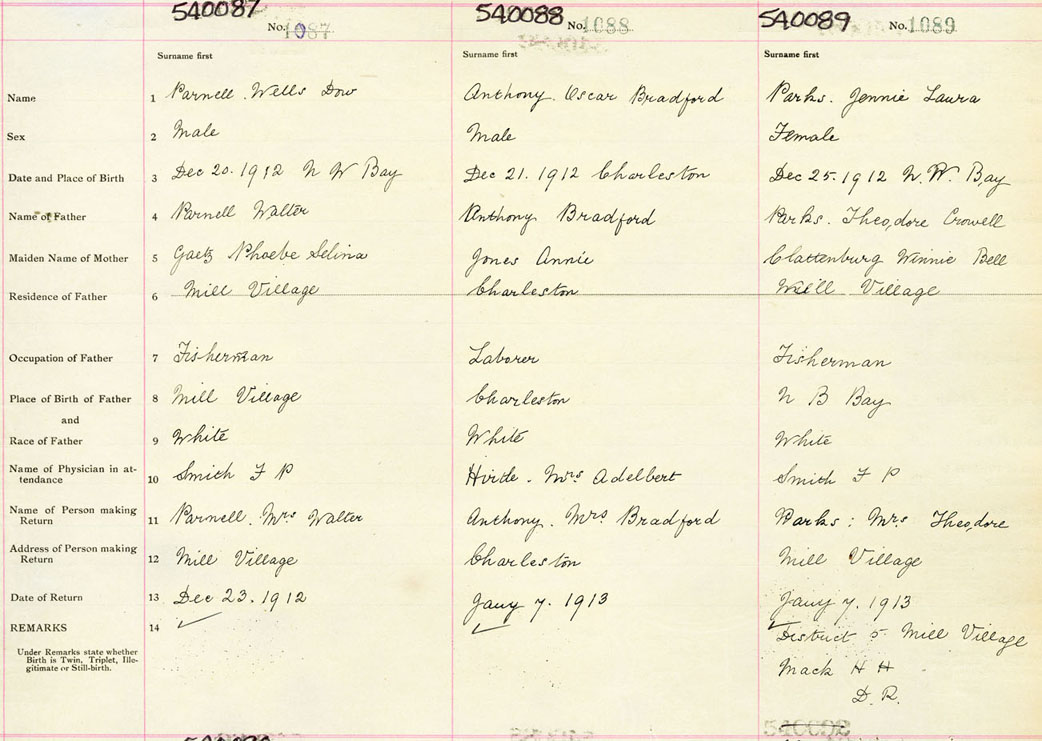 540087 540088 540089
No. 1087 No. 1088 No. 1089
Surname first Surname first Surname first
Name 1 Parnell. Wells Dow Anthony. Oscar Bradford Parks. Jennie Laura
Sex 2 Male Male Female
Date and Place of Birth 3 Dec 20. 1912 N W Bay Dec 21. 1912 Charleston Dec 25. 1912 N. W. Bay
Name of Father 4 Parnell Walter Anthony Bradford Parks. Theodore Crowell
Maiden Name of Mother 5 Gaetz Phoebe Selina Jones Annie Clattenburg Winnie Bell
Residence of Father 6 Mill Village Charleston Mill Village
Occupation of Father 7 Fisherman Laborer Fisherman
Place of Birth of Father 8 Mill Village Charleston N B Bay
and
Race of Father 9 White White White
Name of Physician in at-
tendance 10 Smith F P Hirtle. Mrs Adelbert Smith F P
Name of Person making
Return 11 Parnell. Mrs Walter Anthony. Mrs Bradford Parks: Mrs Theodore
Address of Person making
Return 12 Mill Village Charleston Mill Village
Date of Return 13 Dec 23. 1912 Jany 7. 1913 Jany 7. 1913
REMARKS 14 ✓ ✓ ✓ District 5 Mill Village
Under Remarks state whether
Birth is Twin, Triplet, Ille-
gitimate or Still-birth.
Mack H H
D. R.